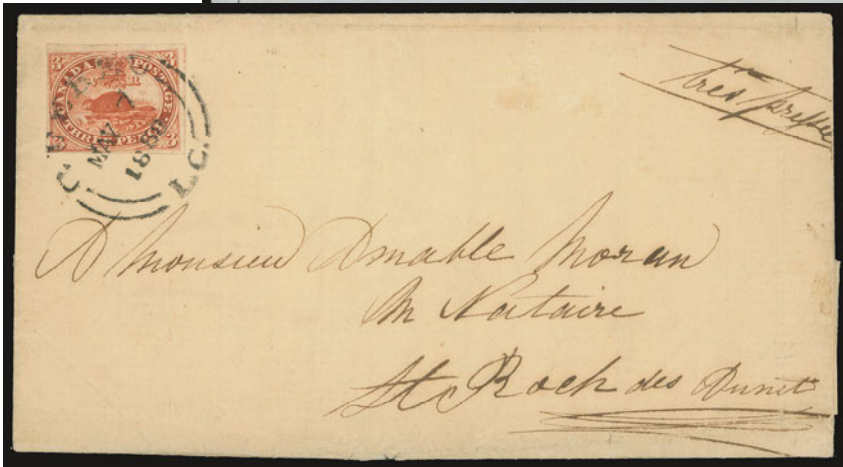 3 CANADA POSTAGE 3
3 THREE PENCE 3
MAY
7
1858
L.C.
très pressée
A Monsieur Amable Moran
M Notaire
St Roch des Aunets